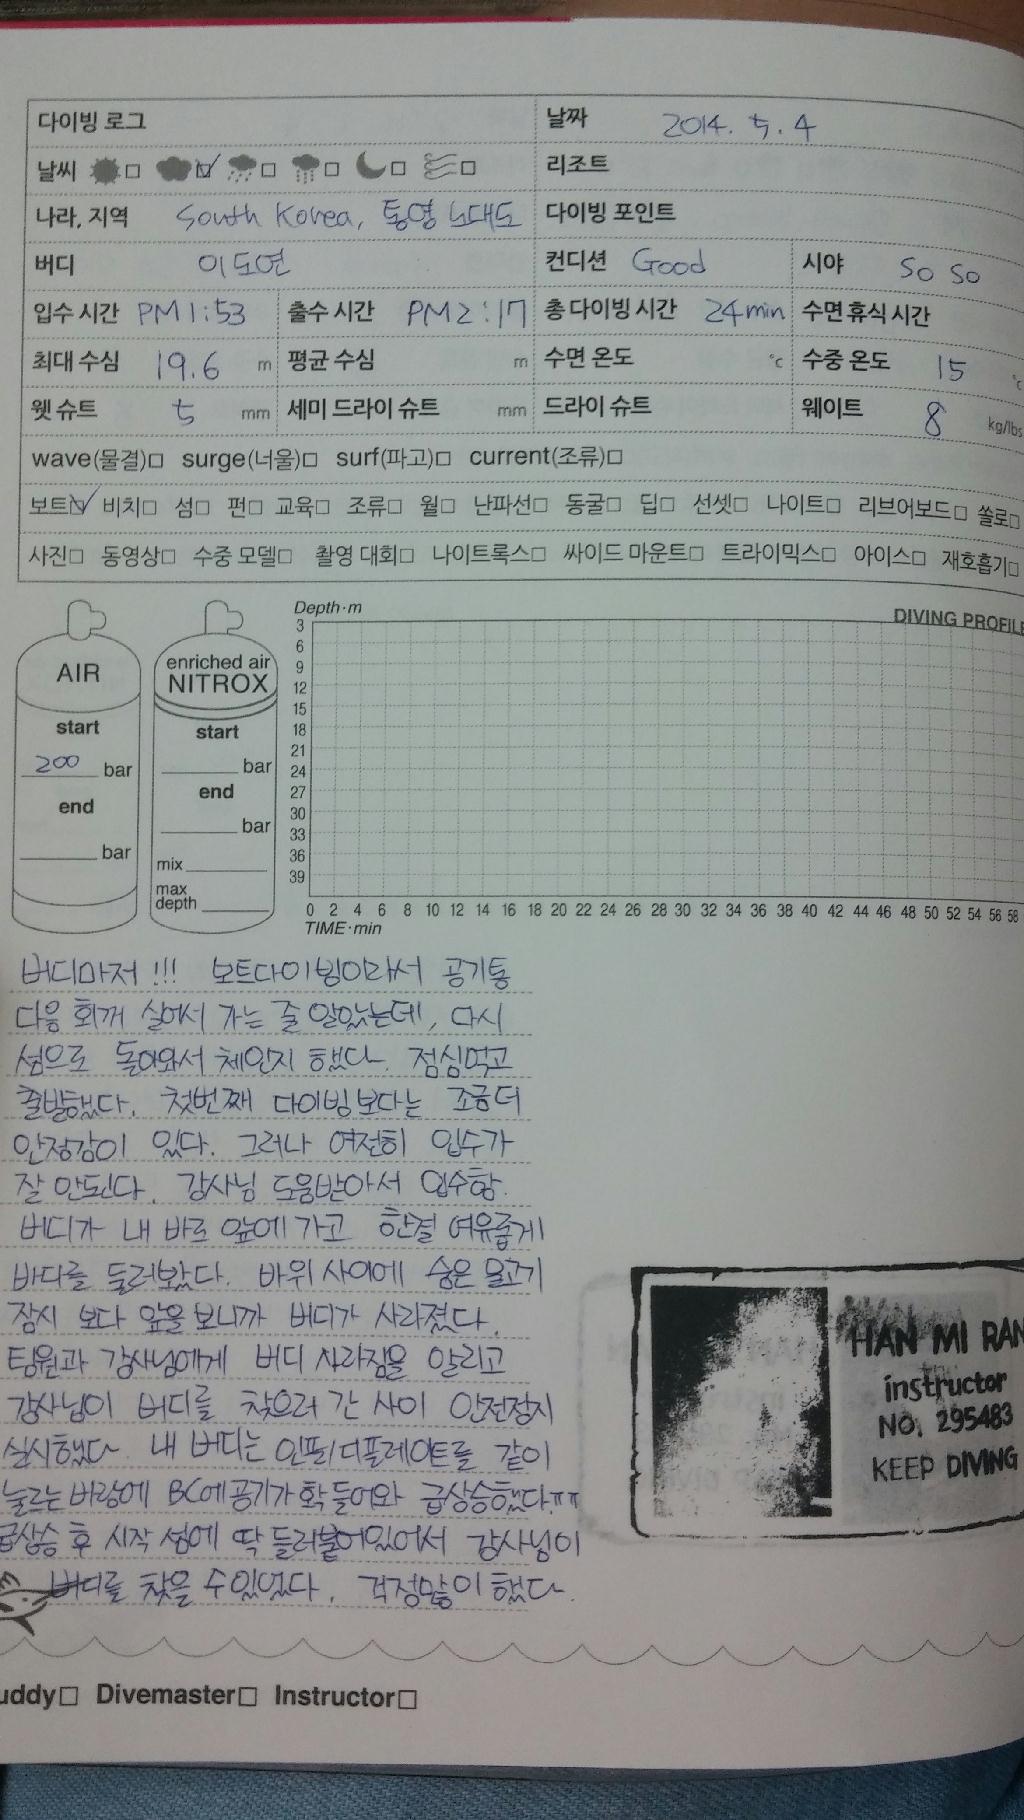 다이빙 로그 날짜 2014. 5. 4
날씨 리조트
나라, 지역 South Korea, 통영 노대도 다이빙 포인트
버디 이도연 컨디션 Good 시야 so so
입수 시간 PM 1:53 출수 시간 PM 2:17 총 다이빙 시간 24min 수면 휴식 시간
최대 수심 19.6 m 평균 수심 m 수면 온도 ℃ 수중 온도 15 ℃
웻 슈트 5 mm 세미 드라이 슈트 mm 드라이 슈트 웨이트 8 kg/lbs
wave(물결)□ surge(너울)□ surf(파고)□ current(조류)□
보트☑ 비치□ 섬□ 펀□ 교육□ 조류□ 월□ 난파선□ 동굴□ 딥□ 선셋□ 나이트□ 리브어보드□ 쏠로□
사진□ 동영상□ 수중 모델□ 촬영 대회□ 나이트록스□ 싸이드 마운트□ 트라이믹스□ 아이스□ 재호흡기□
AIR
start
200 bar
end
bar
enriched air
NITROX
start
bar
end
bar
mix
max
depth
Depth·m
DIVING PROFILE
3
6
9
12
15
18
21
24
27
30
33
36
39
0 2 4 6 8 10 12 14 16 18 20 22 24 26 28 30 32 34 36 38 40 42 44 46 48 50 52 54 56 58
TIME·min
버디마저 !!! 보트다이빙이라서 공기통
다음 회꺼 실어서 가는 줄 알았는데, 다시
섬으로 돌아와서 체인지 했다. 점심먹고
출발했다. 첫번째 다이빙보다는 조금더
안정감이 있다. 그러나 여전히 입수가
잘 안된다. 강사님 도움받아서 입수함.
버디가 내 바로 앞에 가고 한결 여유롭게
바다를 둘러봤다. 바위 사이에 숨은 물고기
잠시 보다 앞을 보니까 버디가 사라졌다.
팀원과 강사님에게 버디 사라짐을 알리고
강사님이 버디를 찾으러 간 사이 안전정지
실시했다. 내 버디는 인플/디플레이트를 같이
눌르는 바람에 BC에 공기가 확 들어와 급상승했다ㅠㅠ
급상승 후 시작 섬에 딱 들러붙어있어서 강사님이
버디를 찾을 수 있었다. 걱정많이 했다.
HAN MI RAN
instructor
NO. 295483
KEEP DIVING
uddy□ Divemaster□ Instructor□